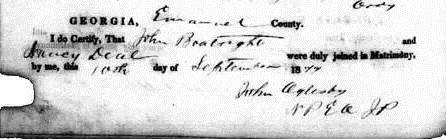 GEORGIA, Emanuel County.
I do Certify, That John Boatright and
Nancy Deal were duly joined in Matrimony,
by me, this 10th day of September 1874
John Oglesby
N P E C JP